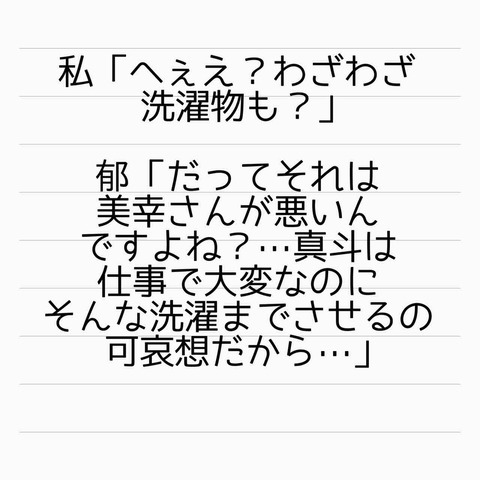 私「へぇえ？わざわざ
洗濯物も？」
郁「だってそれは
美幸さんが悪いん
ですよね？…真斗は
仕事で大変なのに
そんな洗濯までさせるの
可哀想だから…」